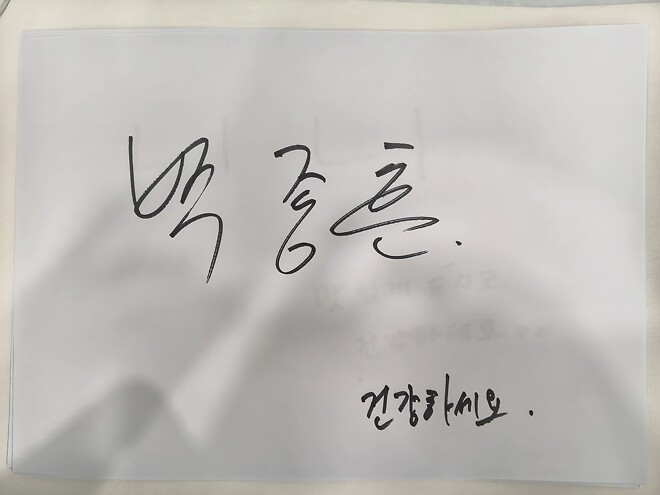 박중훈.
건강하세요.